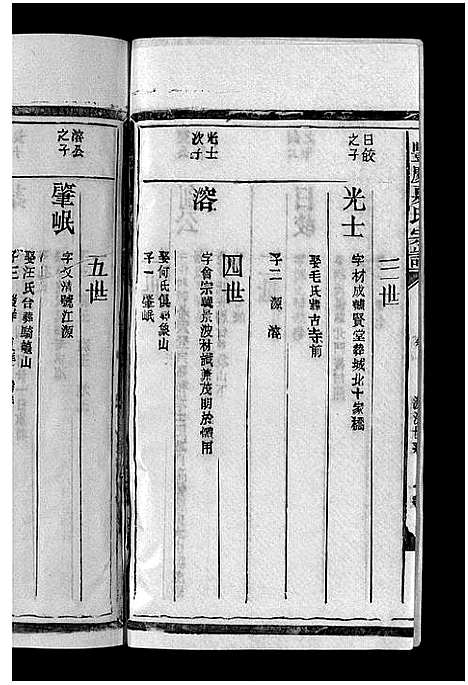 三世
日皎
之子
光士
字材成號賢堂葬城北十家穚
娶毛氏葬古寺前
子二 源 溶
四世
光士
次子
溶
字會宗號景波材識兼茂明於懷用
娶何氏俱葬象山
子一 肇岷
五世
溶公
之子
肇岷
字文清號江源
娶汪氏合葬騎龍山